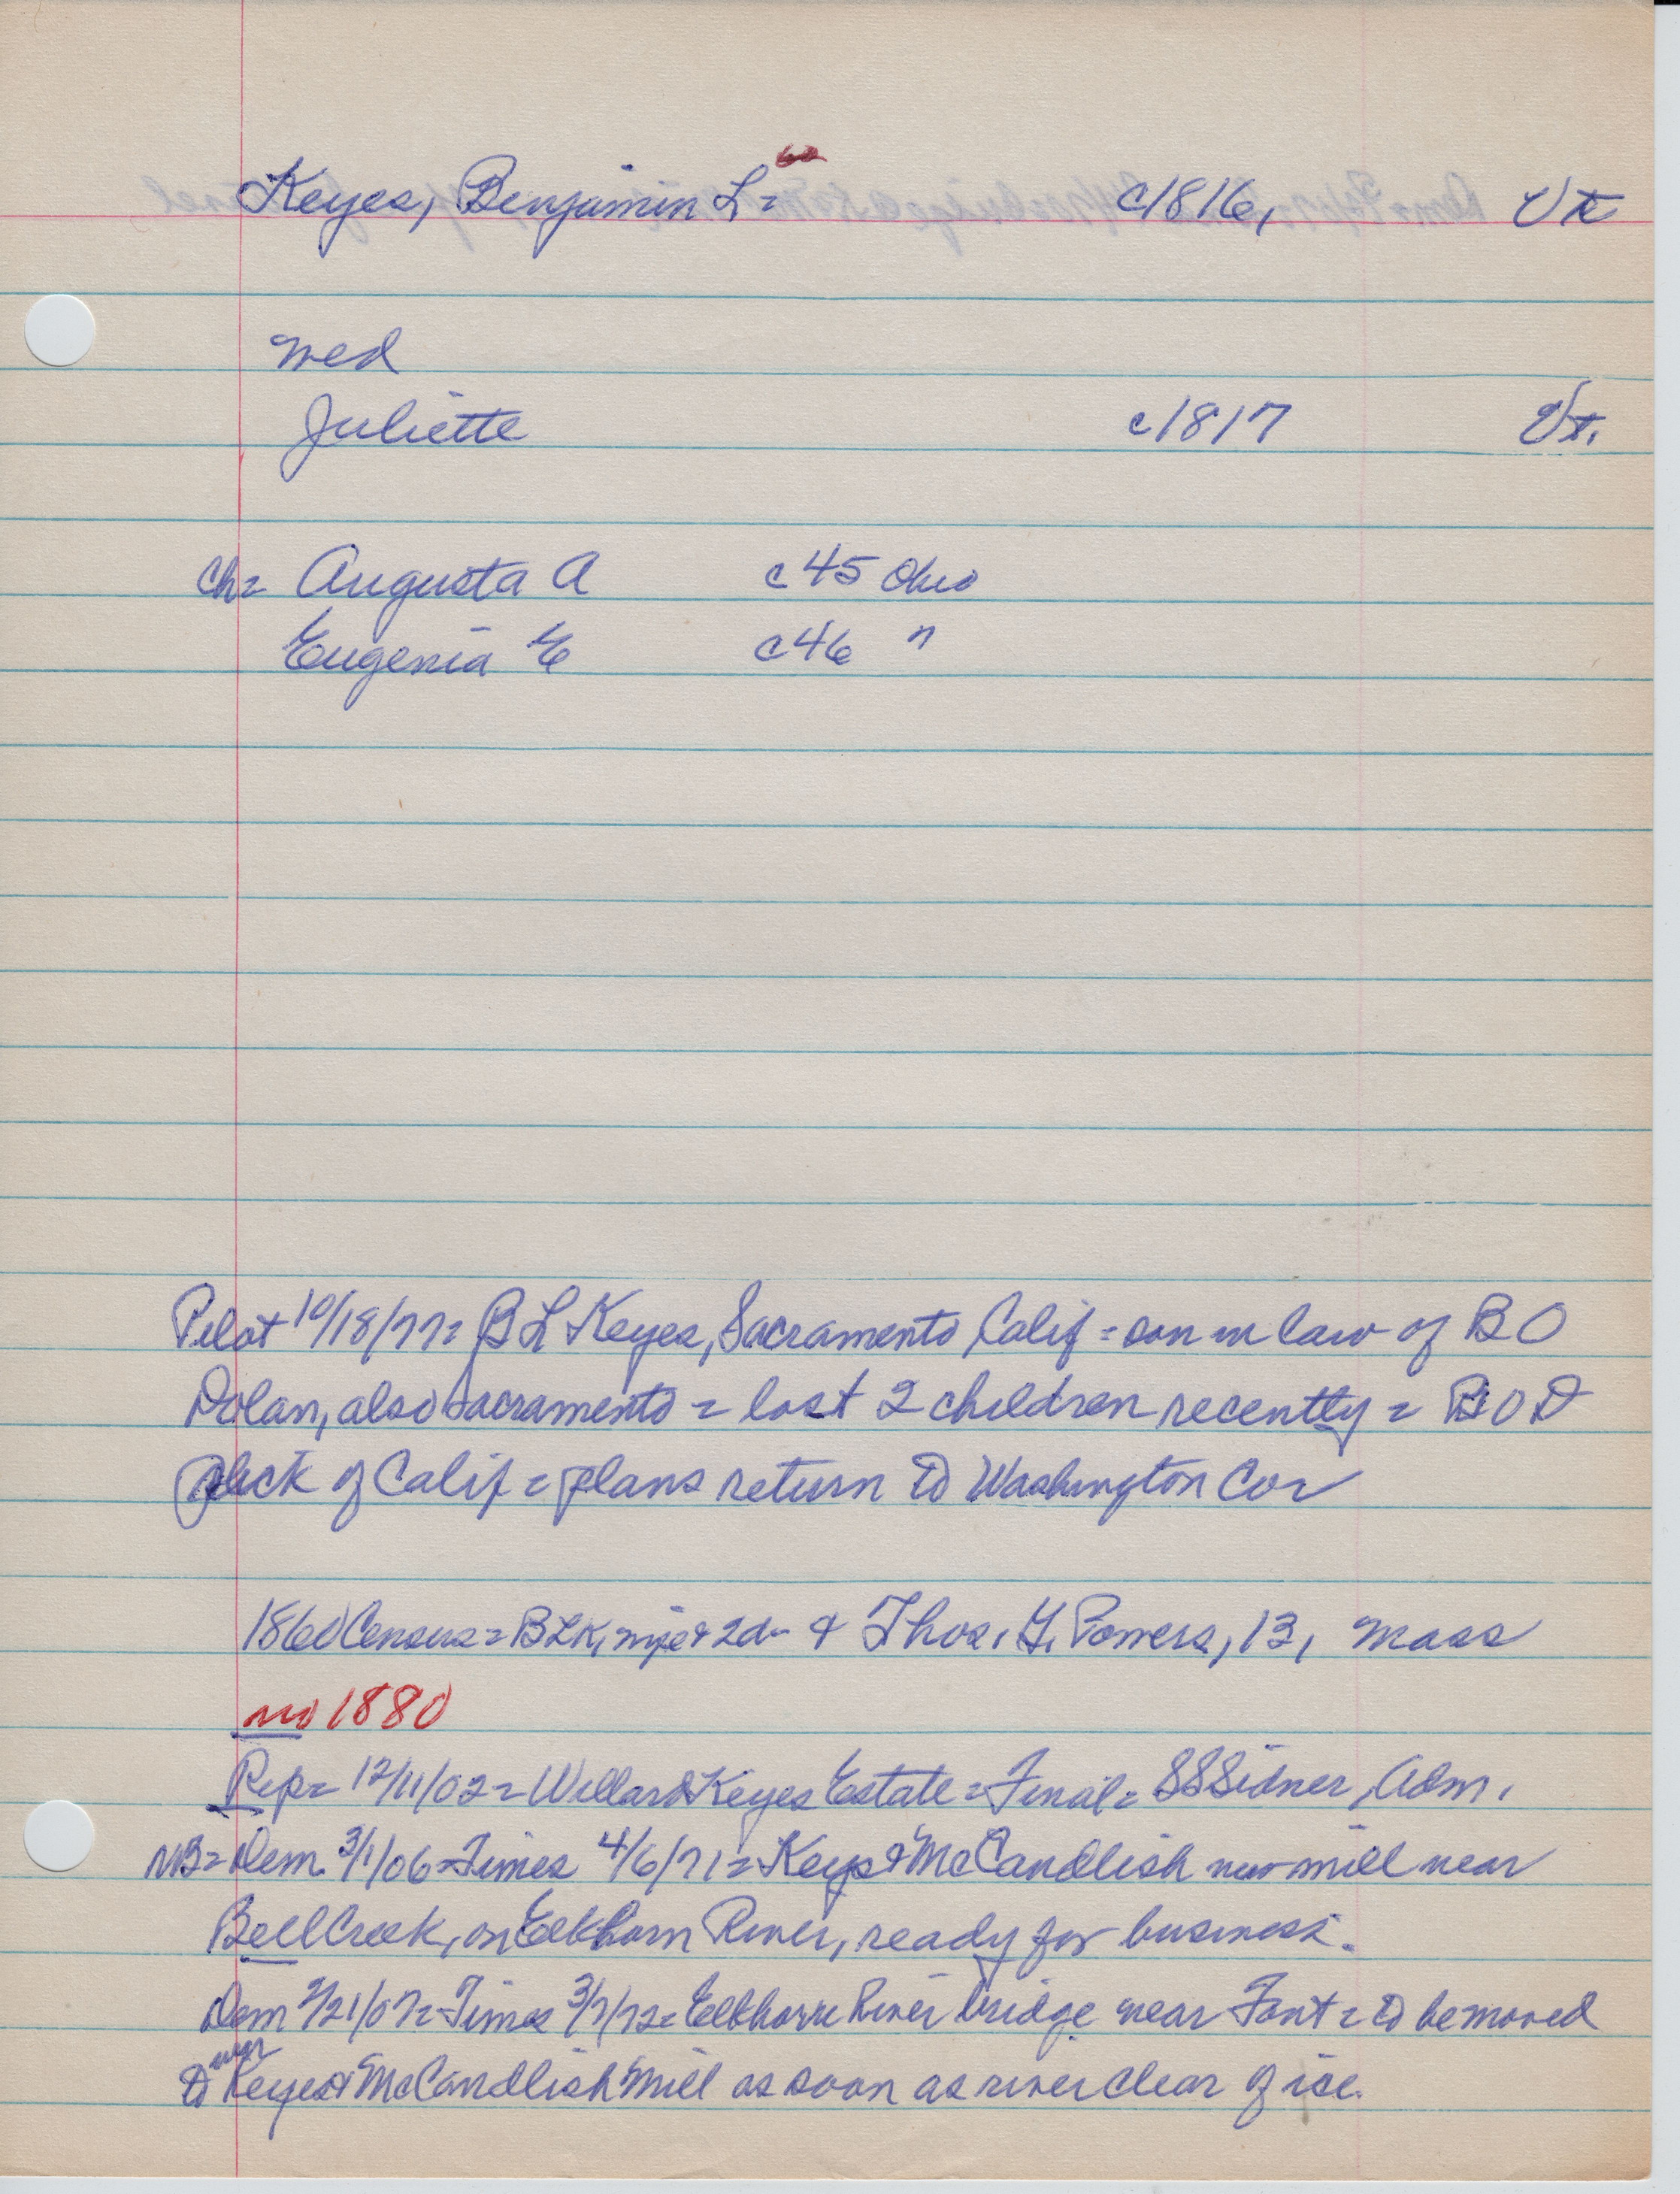 Keyes, Benjamin L = 60 c1816, Vt
med
Juliette c1817 Vt.
Ch = Augusta A c45 Ohio
Eugenia E c46 "
Pilot 10/18/77 = B L Keyes, Sacramento, Calif = son in law of B O
Dolan, also Sacramento = lost 2 children recently = B O D
sick of Calif = plans return to Washington Co =
1860 Census = BLK, wife & 2d - & Thos. G. Powers, 13, Mass
no 1880
Rep = 12/11/02 = Willard Keyes Estate = Final = SS Sidner, Adm.
NB = Dem 3/1/06 = Times 4/6/71 = Keys & McCandlish new mill near
Bell Creek, on Elkhorn River, ready for business.
Dem 2/21/07 = Times 3/7/72 = Elkhorn River bridge near Font = to be moved
to near Keyes & McCandlish Mill as soon as river clear of ice.